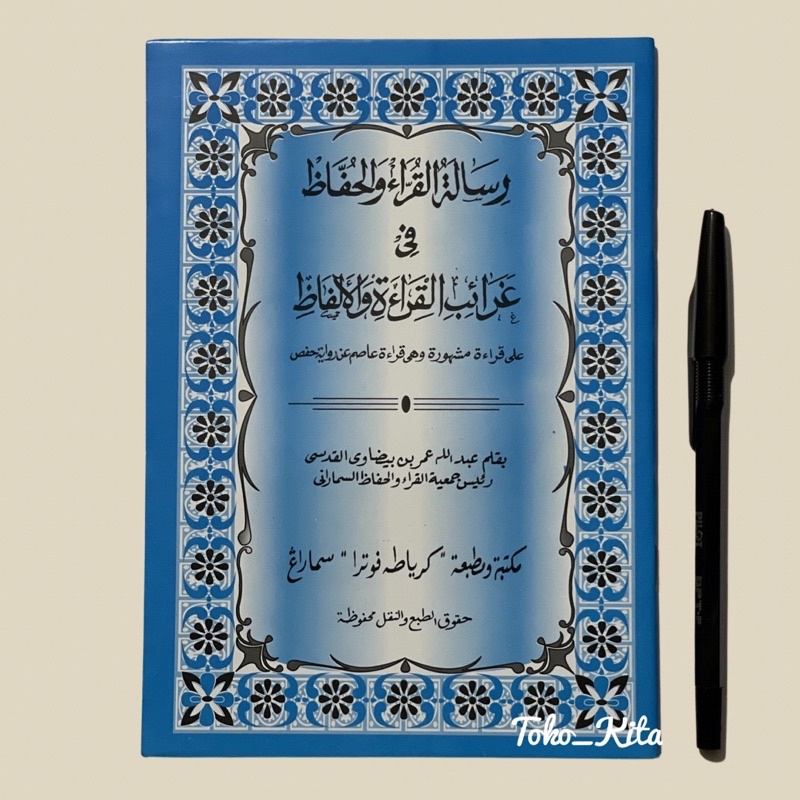 رِسَالَةُ القُرَّاءِ وَالحُفَّاظِ
فِي
غَرَائِبِ القِرَاءَةِ وَالأَلْفَاظِ
على قراءة مشهورة وهى قراءة عاصم عن رواية حفص
بقلم عبد الله عمر بن بيضاوى القدسى
رئيس جمعية القراء والحفاظ السمارانى
مكتبة ومطبعة "كرياطه فوترا" سماراڠ
حقوق الطبع والنقل محفوظة
Toko_Kita